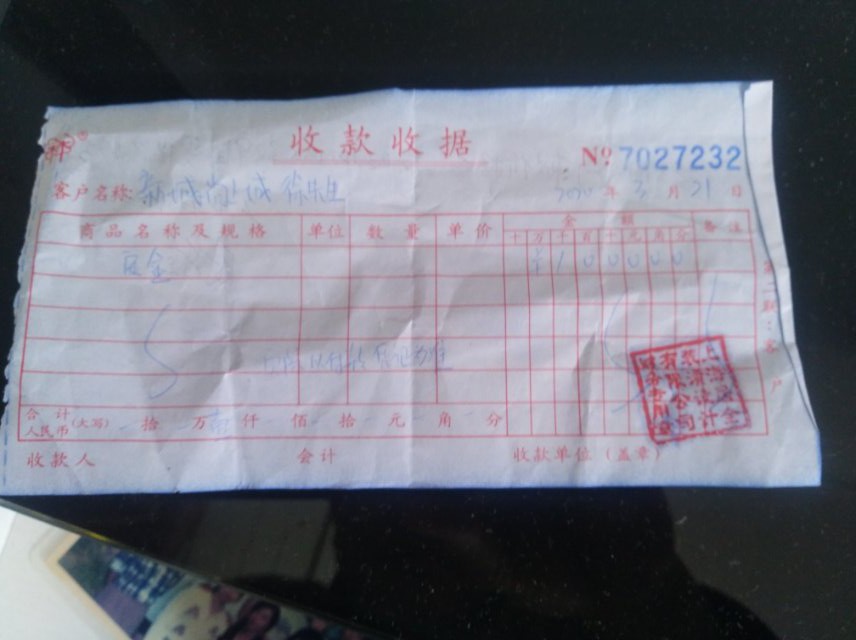 收款收据
№ 7027232
客户名称: 新城尚上城 年 3 月 21 日
商品名称及规格 单位 数量 单价 金额 备注
十 万 千 百 十 元 角 分
定金 ¥ 1 0 0 0 0 0
第二联:客户
合计人民币(大写) 拾 万 壹 仟 佰 拾 元 角 分
收款人 会计 收款单位(盖章)
上海
有限公司
财务专用章